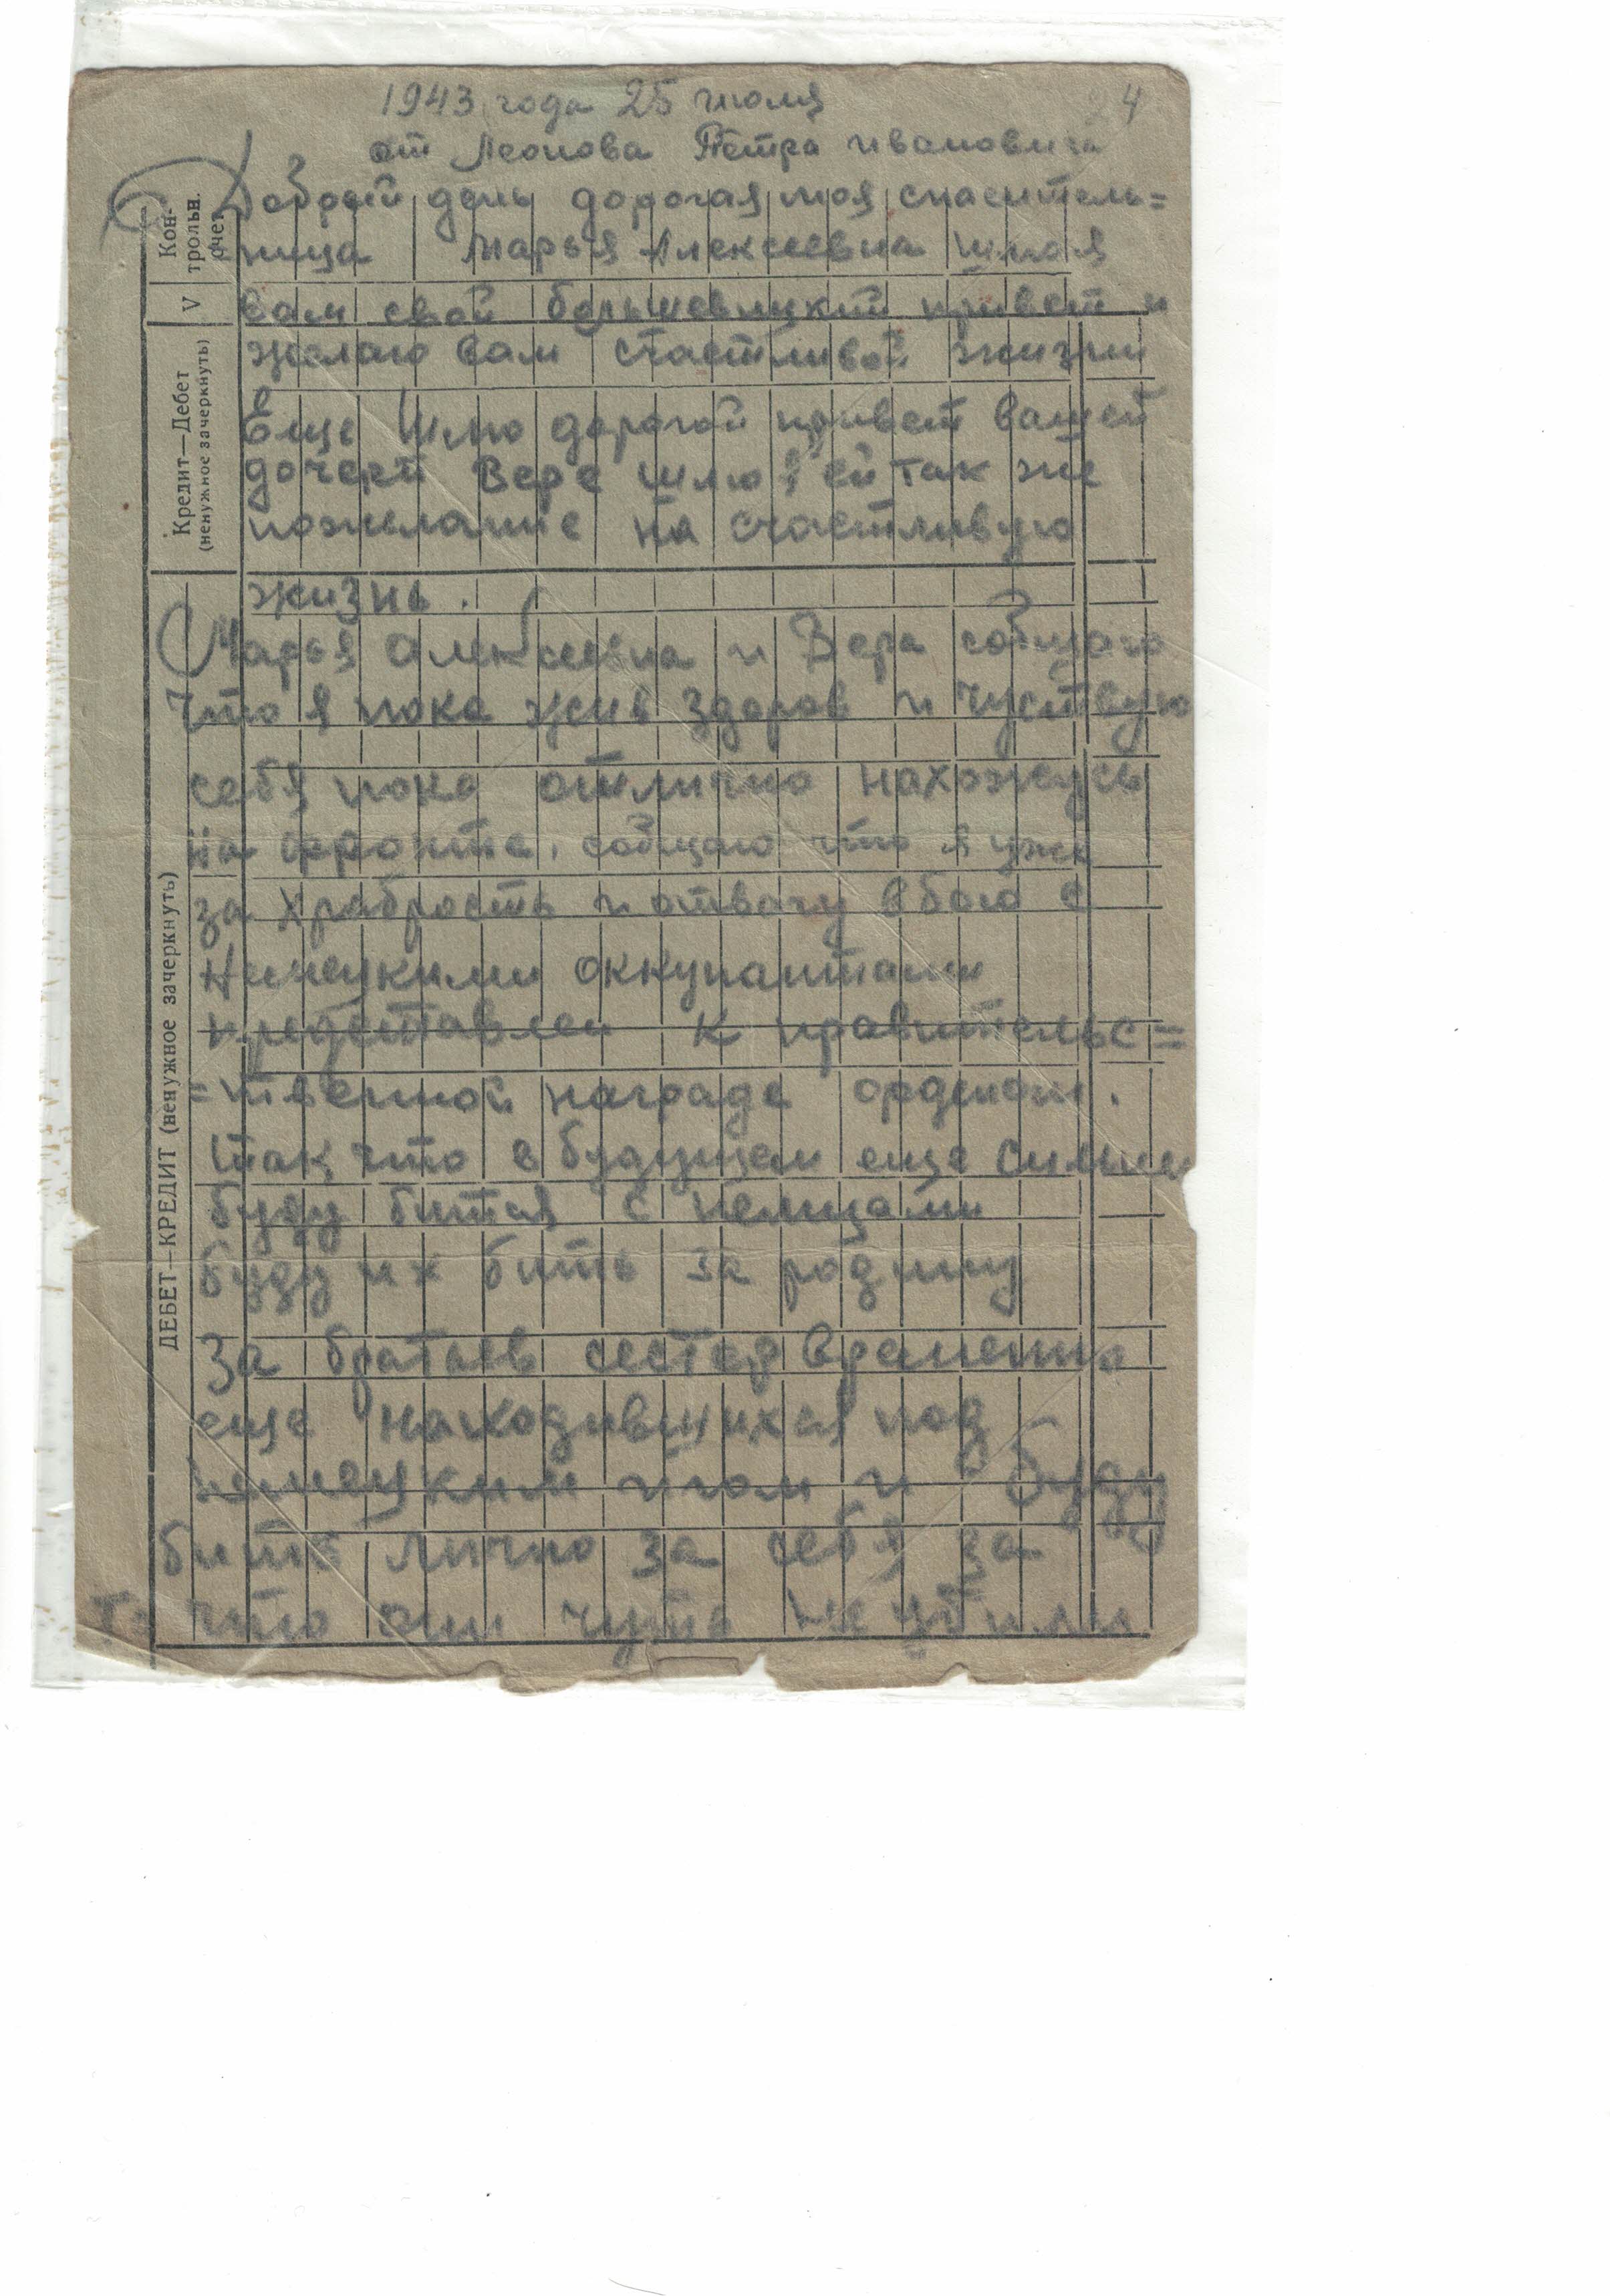 1943 года 25 июля
4
от Леонова Петра ивановича
Добрый день дорогая моя спаситель=
ница Марья Алексеевна шлю я
вам свой большевицкий привет и
желаю вам счастливой жизни
Еще Шлю дорогой привет вашей
дочери Вере шлю ей так же
пожелание на счастливую
жизнь.
Марья Алексеевна и Вера собщаю
что я пока жив здоров и чуствую
себя пока отлично нахожусь
на фронте, собщаю что я уже
за храбрость и отвагу в бою с
Немецкими оккупантами
представлен к правительс=
=твенной награде орденом.
так что в будущем еще
буду битья с немцами
буду их бить за родину
За братьев сестер временно
еще находившихся под
немецким игом и буду
бить лично за себя за
то что они чуть не убили
Кон-
трольн.
счет
V
Кредит—Дебет
(ненужное зачеркнуть)
ДЕБЕТ—КРЕДИТ (ненужное зачеркнуть)